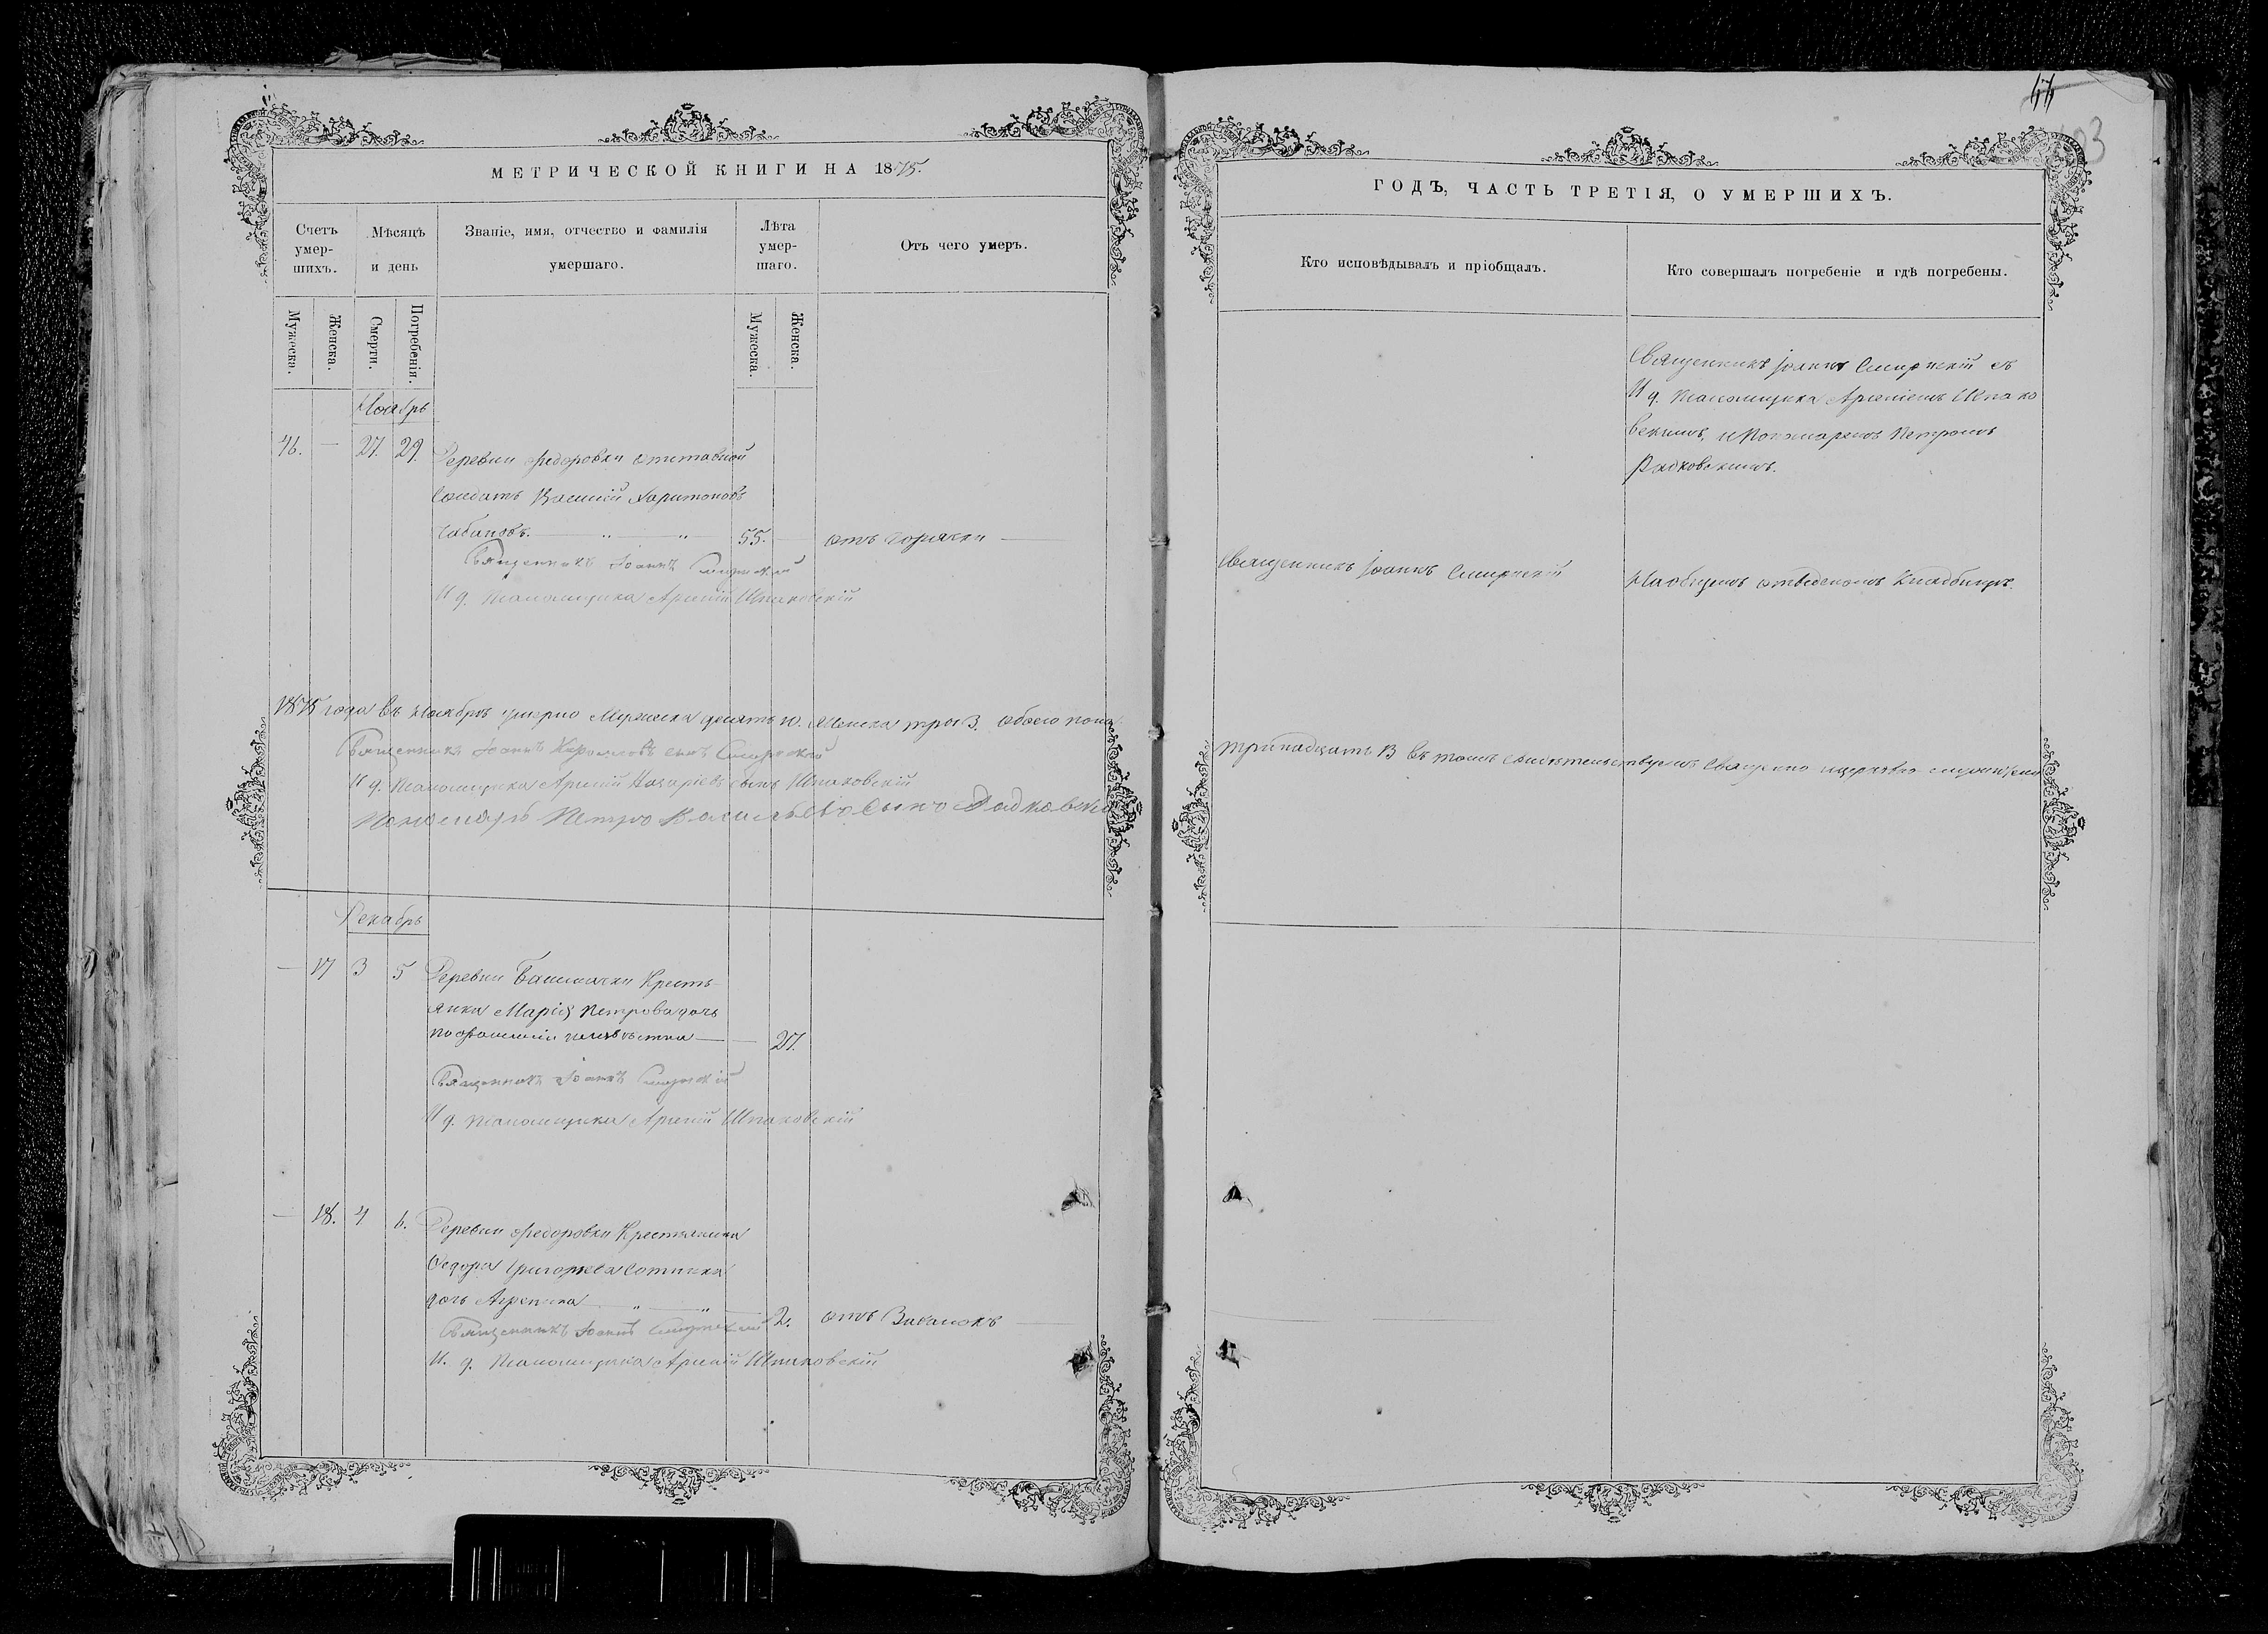 МЕТРИЧЕСКОЙ КНИГИ НА 1875.
Счетъ умер-шихъ.
Мѣсяцъ и день
Званіе, имя, отчество и фамилія умершаго.
Лѣта умер-шаго.
Отъ чего умеръ.
Мужеска.
Женска.
Смерти.
Погребенія.
Мужеска.
Женска.
Ноябрь
46. — 27. 29. Деревни Федоровки отставной
Солдатъ Василій Харитоновъ
Чабановъ. — „ — „ 55. — отъ горячки —
Священникъ Іоаннъ
И д. Псаломщика Арсеній Шпаковскій
1875 года въ Ноябрѣ умерло Мужеска десять 10. Женска три 3. обоего пола
Священникъ Іоаннъ сынъ
И д. Псаломщика Арсеній Назаріевъ сынъ Шпаковскій
Пономарь Петръ Васильевъ сынъ
Декабрь
— 17 3 5 Деревни Башмачки Кресть-
янка Марія Петрова дочь
по фамиліи неизвѣстна — — 27.
Священникъ Іоаннъ
И д. Псаломщика Арсеній Шпаковскій
— 18. 4 6. Деревни Федоровки Крестьянина
Федора Григорьева Сотника
дочь — „ — „ — 2. отъ —
Священникъ Іоаннъ
И. д. Псаломщика Арсеній Шпаковскій
44
ГОДЪ, ЧАСТЬ ТРЕТІЯ, О УМЕРШИХЪ.
Кто исповѣдывалъ и пріобщалъ.
Кто совершалъ погребеніе и гдѣ погребены.
Священникъ Іоаннъ съ
И д. Псаломщика Арсеніемъ Шпако
вскимъ, и Пономаремъ Петромъ
Священникъ Іоаннъ
На общемъ отведеномъ Кладбищѣ.
тринадцать 13 въ томъ свидѣтельствуемъ Священно церковно служители